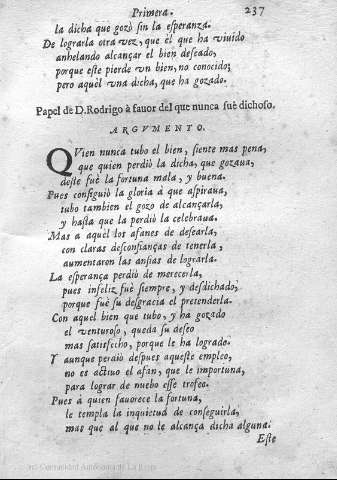 Primera. 237
la dicha que gozò sin la esperanza.
De lograrla otra vez, que èl que ha viuido
anhelando alcançar el bien deseado,
porque este pierde vn bien, no conocido;
pero aquèl vna dicha, que ha gozado.
Papel de D. Rodrigo à fauor del que nunca fuè dichoso.
ARGVMENTO.
QVien nunca tubo el bien, siente mas pena,
que quien perdiò la dicha, que gozaua,
deste fuè la fortuna mala, y buena.
Pues consiguiò la gloria à que aspiraua,
tubo tambien el gozo de alcançarla,
y hasta que la perdiò la celebraua.
Mas a aquèl los afanes de desearla,
con claras desconfianças de tenerla,
aumentaron las ansias de lograrla.
La esperança perdiò de merecerla,
pues infeliz fuè siempre, y desdichado;
porque fuè su desgracia el pretenderla.
Con aquel bien que tubo, y ha gozado
el venturoso, queda su deseo
mas satisfecho, porque le ha logrado.
Y aunque perdiò despues aqueste empleo,
no es actiuo el afan, que le importuna,
para lograr de nuebo esse trofeo.
Pues à quien fauorece la fortuna,
le templa la inquietud de conseguirla,
mas que al que no le alcança dicha alguna.
Este
Comunidad Autónoma de La Rioja